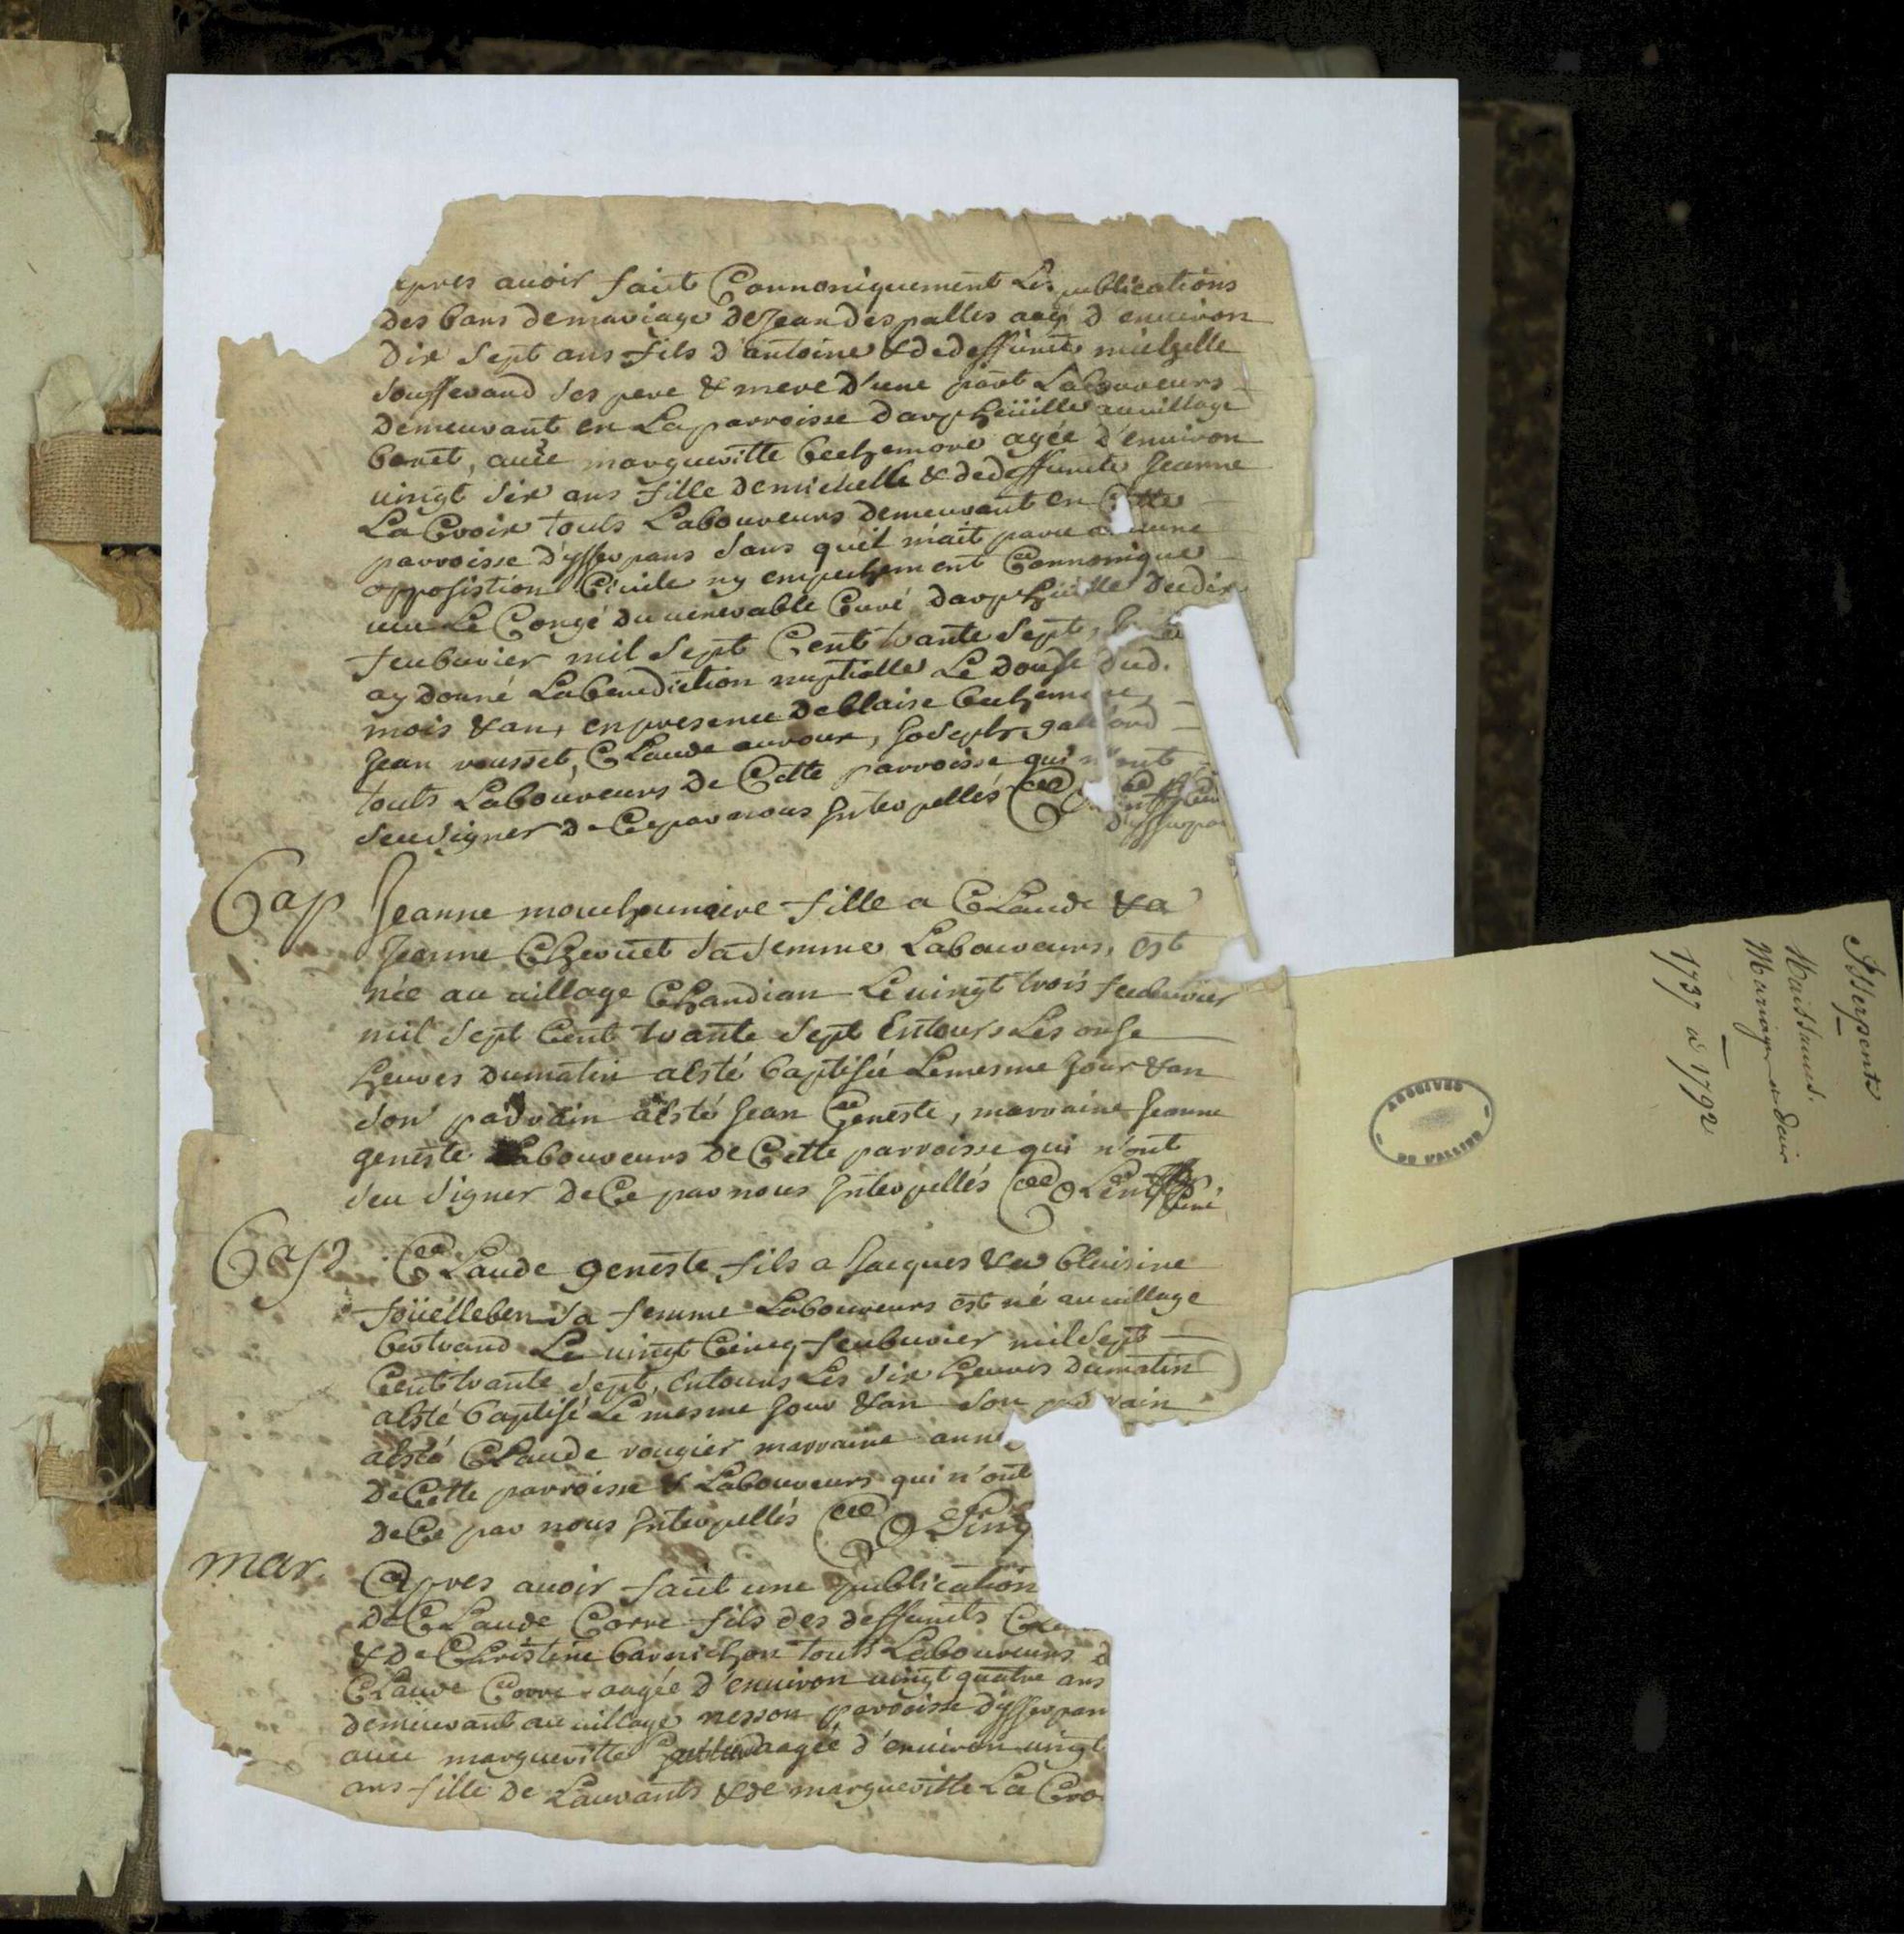 apres auoir faict Cannoniquement Les publications
des bans demariage de Jean des palles aagé d'enuiron
dix sept ans fils d'antoine & dedeffuncte
Souffrand ses pere & mere d'une part Laboureurs
demeurant en Laparroisse darpheüille auuillage
boret, auec margueritte bechemore agée d'enuiron
uingt six ans fille demichelle & dedeffuncte Jeanne
La Croix touts Laboureurs demeurant en Cette
parroisse d'ysserpans sans quil m'ait paru aucune
opposistion Ciuile ny empechement Cannonique
ueu Le Congé du uenerable Curé darpheüille dudix
feubvrier mil sept Cent trante sept, Je Leur
ay donné Labenediction nuptialle Le douse dud.
mois & an, en presence de blaise bechemore,
Jean rousset, CLaude auroux, Joseph
touts Laboureurs de Cette parroisse qui n'ont
seu signer de Ce par nous Interpellés
d'ysserpa
Bap Jeanne mouchonniere fille a CLaude & a
Jeanne Cherouet sa femme Laboureurs, est
née au uillage Chandian Le uingt trois feubvrier
mil sept Cent trante sept Entours Les onse
heures dumatin a esté baptisée Le mesme Jour & an
son parrain a esté Jean Geneste, marraine Jeanne
geneste Laboureurs de Cette parroisse qui n'ont
seu signer de Ce par nous Interpellés
Curé
Bap CLaude geneste fils a Jacques & a blaisine
foüelleben sa femme Laboureurs est né auuillage
bertrand Le uingt Cincq feubvrier mil sept
Cent trante sept, entours Les six heures dumatin
a esté baptisé Le mesme Jour & an son parrain
a esté CLaude rougier marraine anne
de Cette parroisse & Laboureurs qui n'ont
de Ce par nous Interpellés
mar. Apres auoir faict une publication
de CLaude Corre fils des deffuncts
& de Christine barnichon touts Laboureurs d
CLaude Corre aagée d'enuiron uingt quatre ans
demeurant auuillage nesson parroisse d'ysserpan
auec margueritte aagée d'enuiron uingt
ans fille de Laurants & de margueritte La Cro
Isserpents
Naissances.
Mariages et Décès
1737 à 1792
ARCHIVES
DE L'ALLIER